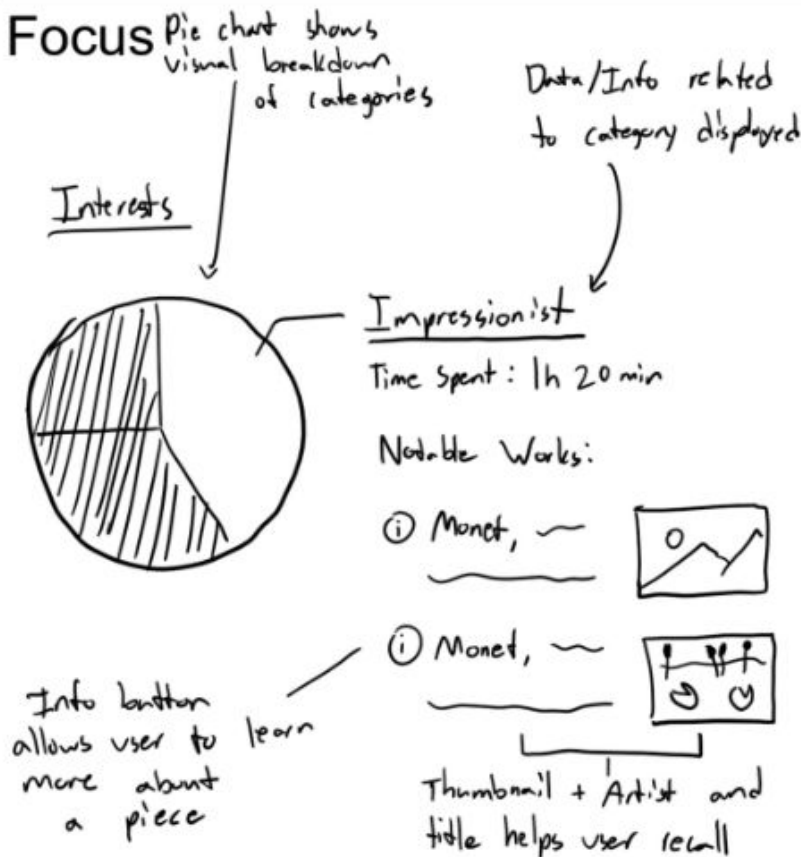 Focus
Pie chart shows
visual breakdown
of categories
Data/Info related
to category displayed
Interests
Impressionist
Time Spent: 1h 20 min
Notable Works:
i Monet,
i Monet,
Info button
allows user to learn
more about
a piece
Thumbnail + Artist and
title helps user recall